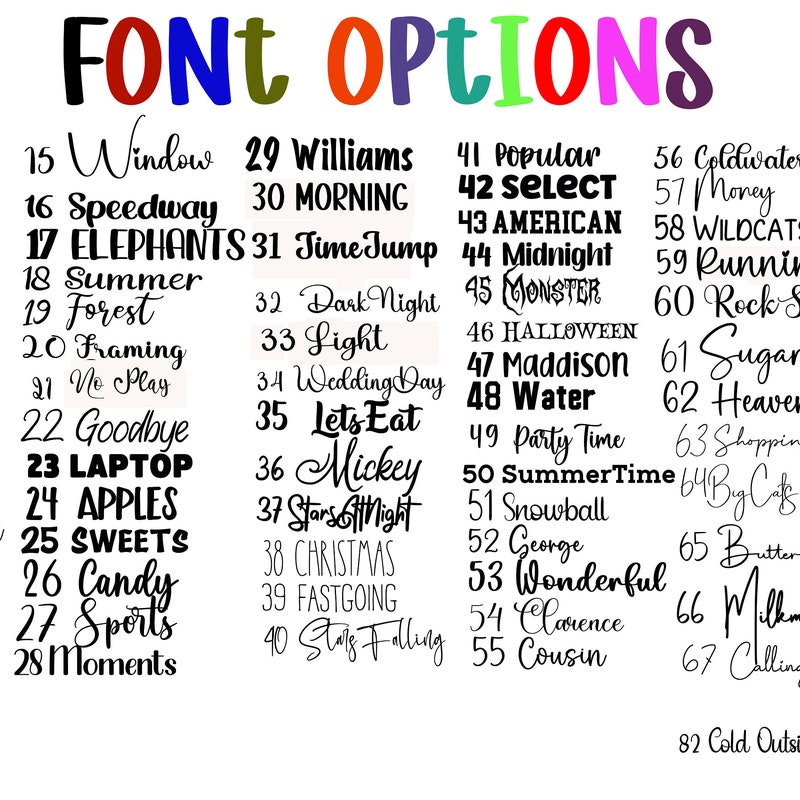 FONt OptIONS
15 Window
16 Speedway
17 ELEPHANTS
18 Summer
19 Forest
20 Framing
21 No Play
22 Goodbye
23 LAPTOP
24 APPLES
25 SWEETS
26 Candy
27 Sports
28 Moments
29 Williams
30 MORNING
31 TimeJump
32 DarkNight
33 Light
34 WeddingDay
35 LetsEat
36 Mickey
37 StarsAtNight
38 CHRISTMAS
39 FASTGOING
40 Stars Falling
41 Popular
42 SELECT
43 AMERICAN
44 Midnight
45 MONSTER
46 HALLOWEEN
47 Maddison
48 Water
49 Party Time
50 SummerTime
51 Snowball
52 George
53 Wonderful
54 Clarence
55 Cousin
56 Coldwater
57 Money
58 WILDCATS
59 Runnin
60 Rock S
61 Sugar
62 Heaven
63 Shoppin
64 BigCats
65 Butter
66 Milkm
67 Calling
82 Cold Outsi